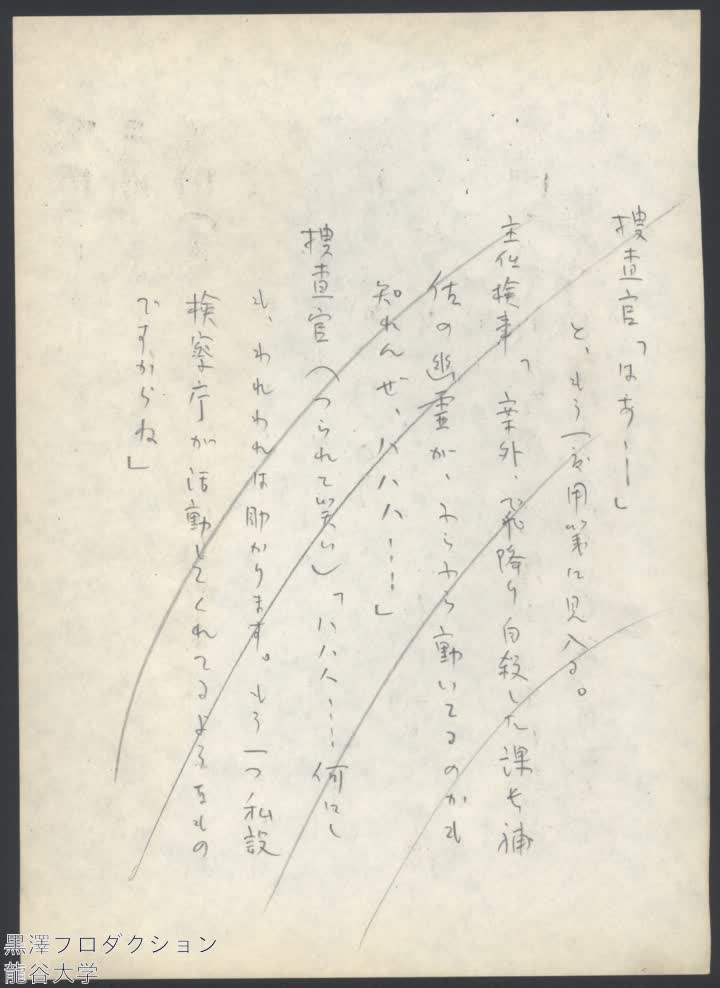 捜査官「はあ……」
と、もう一度用箋に見入る。
主任検事「案外、飛降り自殺した課長補
佐の幽霊が、ふらふら動いてるのかも
知れんぜ、ハハハ……」
捜査官（つられて笑い）「ハハハ……何にし
も、われわれは助かります。もう一つ私設
検察庁が活動してくれてるようなもの
ですからね」
黒澤プロダクション
龍谷大学